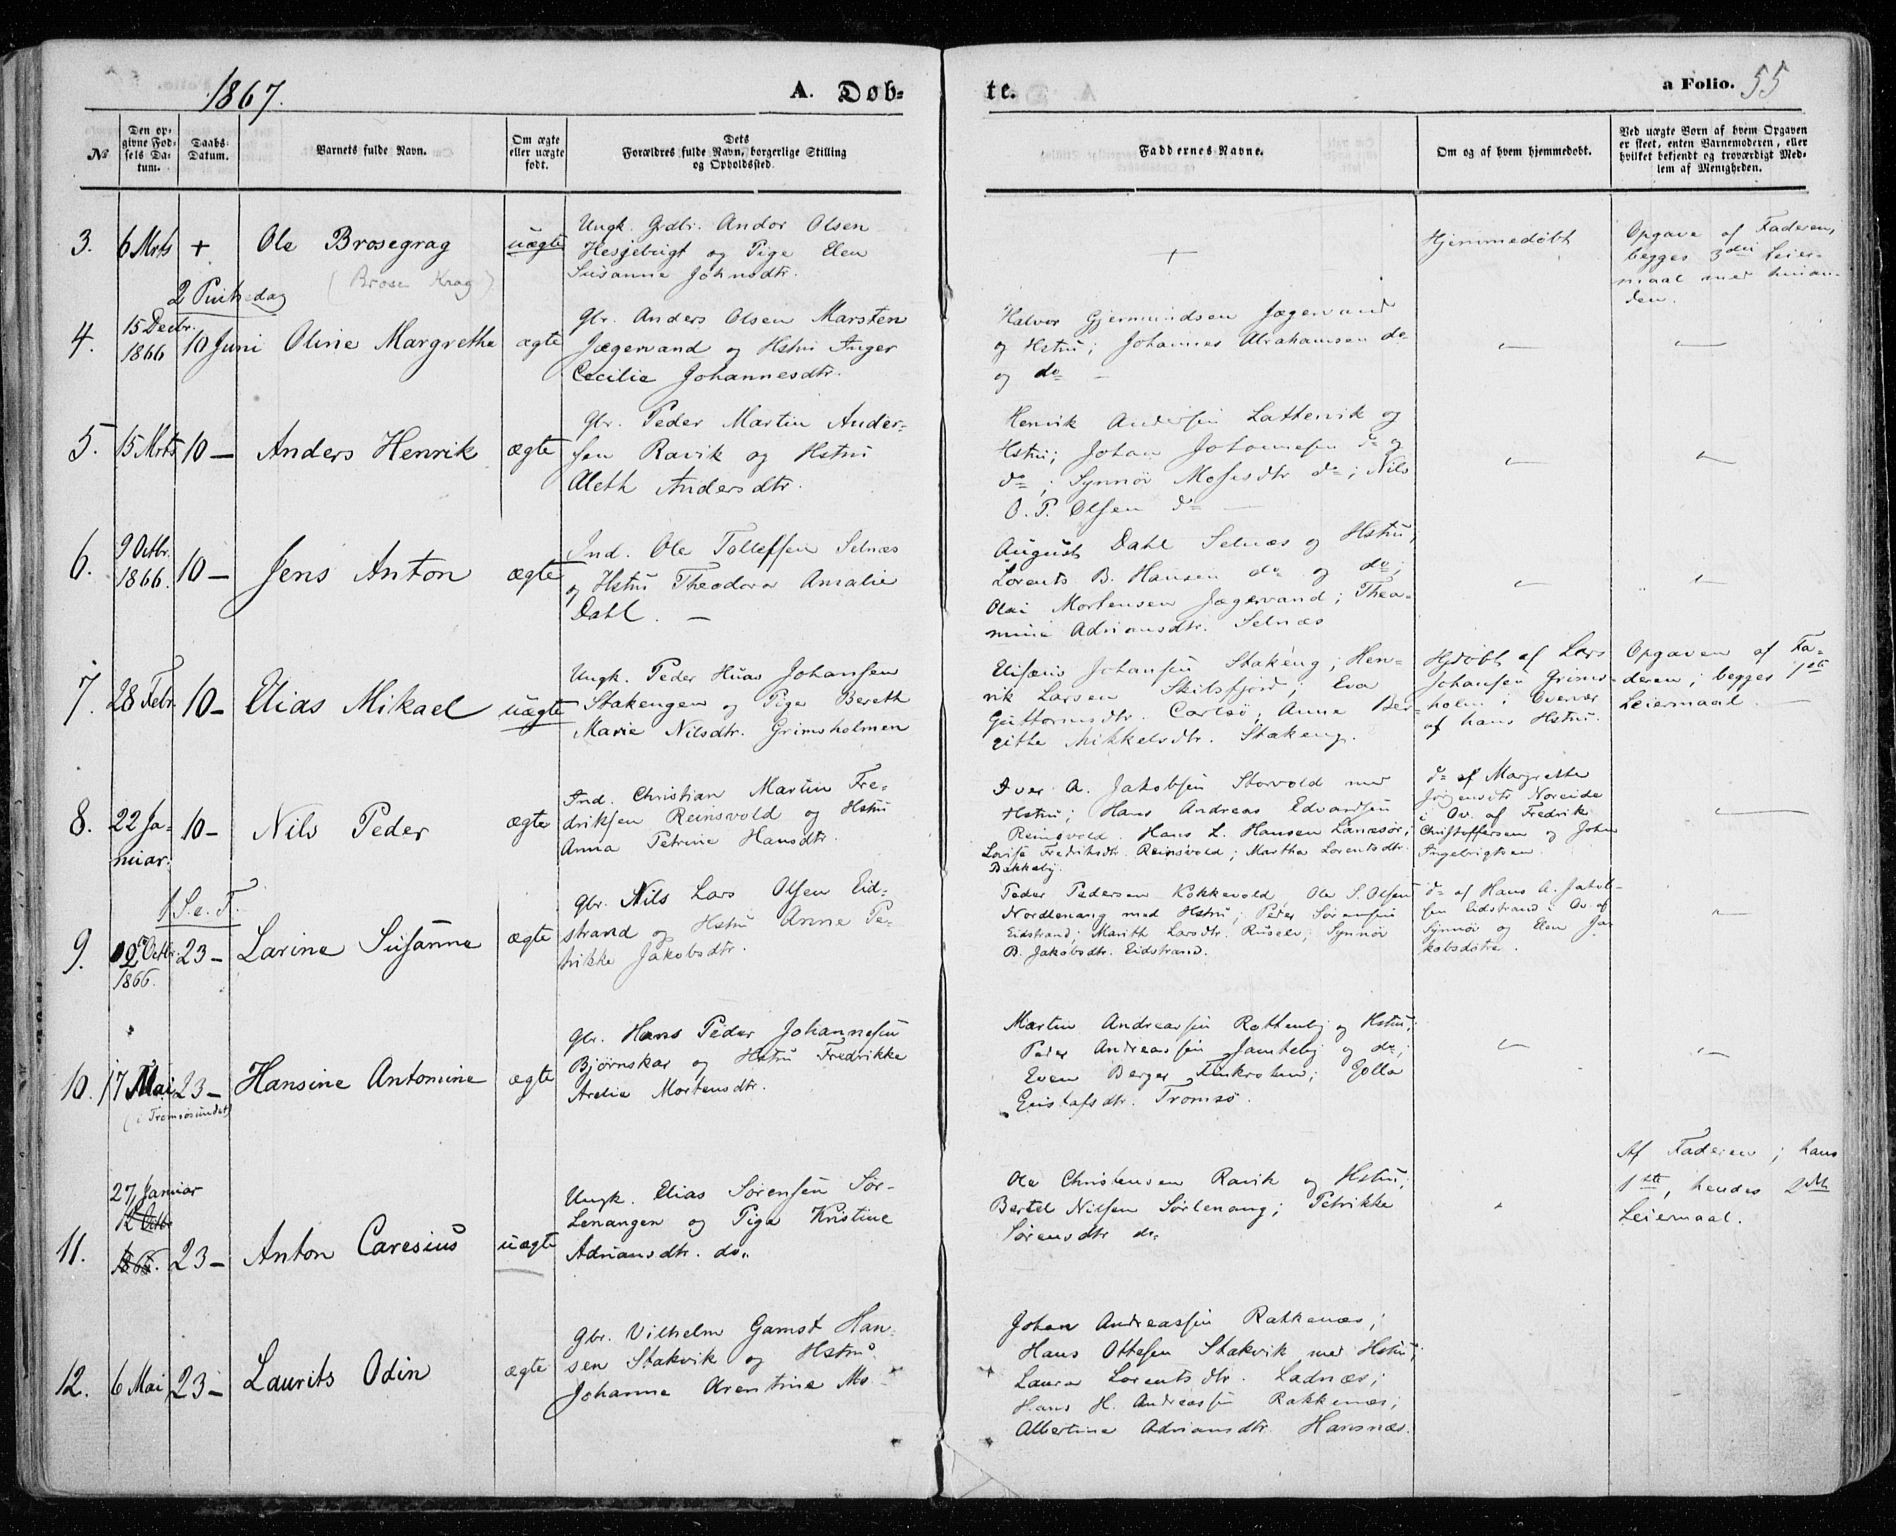 1867.
A. Døb-
te.
a Folio. 55
No
Den op-
givne Fød-
sels Da-
tum.
Daabs-
Datum.
Barnets fulde Navn.
Om ægte
eller uægte
født.
Dets
Forældres fulde Navn, borgerlige Stilling
og Opholdssted.
Faddernes Navne.
Om og af hvem hjemmedøbt.
Ved uægte Børn af hvem Opgaven
er skeet, enten Barnemoderen, eller
hvilket bekjendt og troværdigt Med-
lem af Menigheden.
3.
6 Mrts
+
Ole Brosegrag
(Brose Krag)
uægte
Ungk. Grdbr. Andor Olsen
Hesjebugt og Pige Elen
Susanne Johnsdtr.
+
Hjemmedøbt
Opgave af Faderen,
begges 3die Leier-
maal med hinan-
den.
2 Pintsedag
4.
15 Decbr.
1866
10 Juni
Oline Margrethe
ægte
Gbr. Anders Olsen Marsten
Jægervand og Hstru Inger
Cecilie Johannesdtr.
Halvor Gjermundsen Jægervand
og Hstru; Johannes Abrahamsen do
og do —
5.
15 Mrts
10 —
Anders Henrik
ægte
Gbr. Peder Martin Ander-
sen Ravik og Hstru
Aleth Andersdtr.
Henrik Andersen Lattervik og
Hstru; Johan Johannesen do og
do; Synnøv Mosesdtr do; Nils
O. P. Olsen do —
6.
9 Octbr.
1866.
10 —
Jens Anton
ægte
Ind. Ole Tollefsen Selnæs
og Hstru Theodora Amalie
Dahl. —
August Dahl Selnæs og Hstru,
Lorents B. Hansen do og do;
Olai Mortensen Jægervand; Thea-
mine Adriansdtr. Selnæs
7.
28 Febr.
10 —
Elias Mikael
uægte
Ungk. Peder Huas Johansen
Stakengen og Pige Bereth
Marie Nilsdtr. Grimsholmen
Elisæus Johansen Stakeng; Hen-
rik Larsen Skitsfjord; Eva
Guttormsdtr. Carlsø; Anne Ber-
gitte Mikkelsdtr. Stakeng.
Hjdøbt af Lars
Johansen Grims-
holm i Overvær
af hans Hstru.
Opgaven af Fa-
deren; begges 1ste
Leiermaal. —
8.
22 Ja-
nuar.
10 —
Nils Peder
ægte
Ind. Christian Martin Fre-
driksen Reinsvold og Hstru
Anna Petrine Hansdtr.
Iver A. Jakobsen Storvold med
Hstru; Hans Andreas Edvardsen
Reinsvold. Hans L. Hansen Lanæsør;
Lovise Fredriksdtr. Reinsvold; Martha Lorentsdtr.
Bakkeby.
do af Margrethe
Jørgensdtr Noreide
i Ov. af Fredrik
Christoffersen og John
Ingebrigtsen.
1 S. e. T.
9.
Octbr.
1866.
23 —
Larine Susanne
ægte
Gbr. Nils Lars Olsen Eid-
strand og Hstru Anne Pe-
trikke Jakobsdtr.
Peder Pedersen Kokkevold, Ole S. Olsen
Nordlenang med Hstru; Peder Sørensen
Eidstrand; Marith Larsdtr. Ruselv; Synnøv
B. Jakobsdtr. Eidstrand.
do af Hans A. Jakob-
sen Eidstrand i Ov. af
Synnøv og Elen Ja-
kobsdøtre.
10.
17 Mai
(i Tromsøsundet)
23 —
Hansine Antomine
ægte
Gbr. Hans Peder Johannesen
Bjørnskar og Hstru Fredrikke
Arelie Mortensdtr.
Martin Andreassen Rottenby og Hstru;
Peder Andreassen Jamteby og do;
Even Berger Finkroken; Golla
Gustafsdtr. Tromsø.
11.
27 Januar
12 Octbr
1866.
23 —
Anton Caresius
uægte
Ungk. Elias Sørensen Sør-
Lenangen og Pige Kristine
Adriansdtr. do.
Ole Christensen Ravik og Hstru;
Bertel Nilsen Sørlenang; Petrikke
Sørensdtr do
Af Faderen; hans
1ste, hendes 2det
Leiermaal.
12.
6 Mai
23 —
Laurits Odin
ægte
Gbr. Vilhelm Gamst Han-
sen Stakvik og Hstru
Johanne Arentine Mo
Johan Andreassen Rakkenæs;
Hans Ottesen Stakvik med Hstru;
Laura Lorentsdtr. Ladnæs;
Hans H. Andreassen Rakkenæs;
Albertine Adriansdtr Hansnæs.